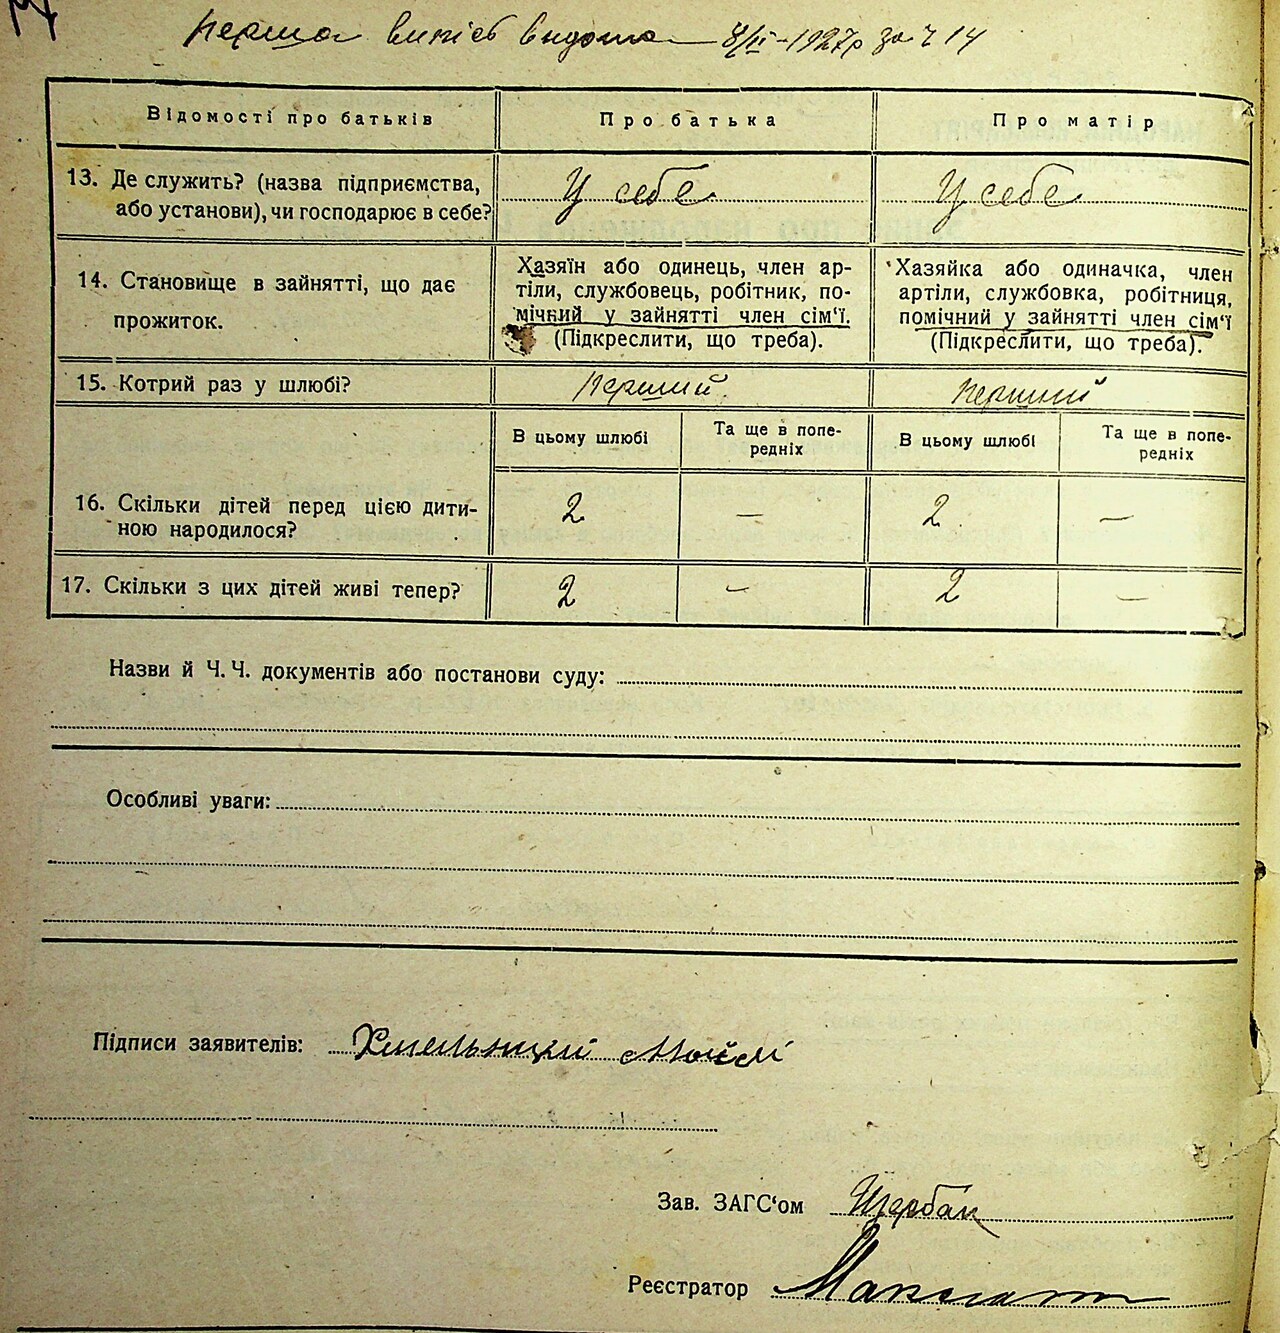 Перша випісь видана 8/II-1927р за ч 14
Відомості про батьків
Про батька
Про матір
13. Де служить? (назва підприємства,
або установи), чи господарює в себе?
У себе
У себе
14. Становище в зайнятті, що дає
прожиток.
Хазяїн або одинець, член ар-
тіли, службовець, робітник, по-
мічний у зайнятті член сім‘ї.
(Підкреслити, що треба).
Хазяйка або одиначка, член
артіли, службовка, робітниця,
помічний у зайнятті член сім‘ї
(Підкреслити, що треба).
15. Котрий раз у шлюбі?
Перший
Перший
В цьому шлюбі
Та ще в попе-
редніх
В цьому шлюбі
Та ще в попе-
редніх
16. Скільки дітей перед цією дити-
ною народилося?
2 — 2 —
17. Скільки з цих дітей живі тепер?
2 — 2 —
Назви й Ч. Ч. документів або постанови суду:
Особливі уваги:
Підписи заявителів: Хмельницкий
Зав. ЗАГС‘ом Щербак
Реєстратор